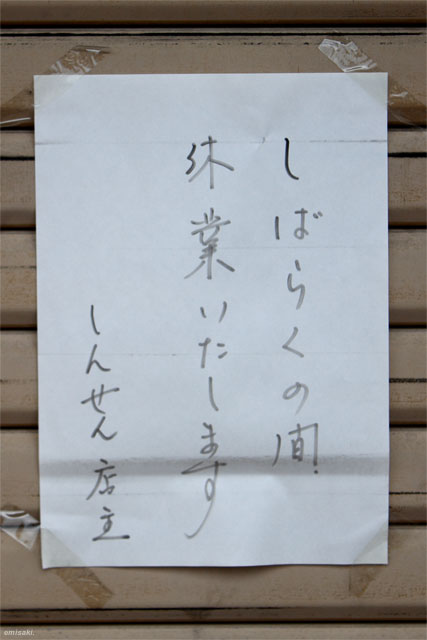 しばらくの間
休業いたします
しんせん店主
omisaki.